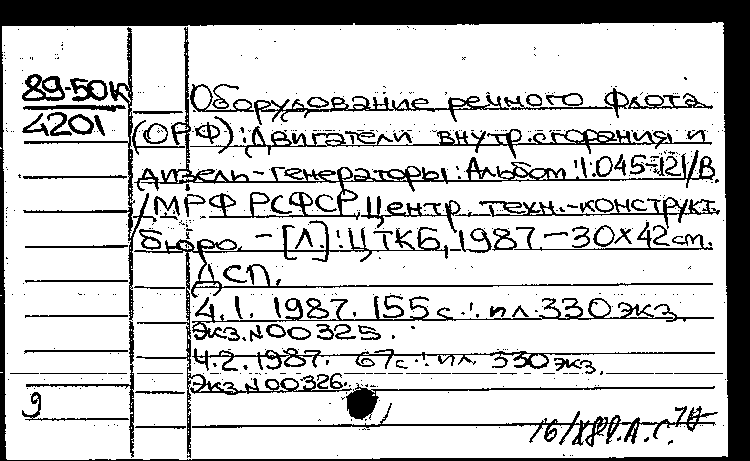 89-50К
4201
Оборудование речного флота
(ОРФ): Двигатели внутр.сгорания и
дизель-генераторы: Альбом: 1.045-121/В.
/МРФ РСФСР, Центр. техн.-конструкт.
бюро. - [Л.]: ЦТКБ, 1987.- 30х42 см.
ДСП.
Ч.1. 1987. 155 с.: ил. 330 экз.
Экз.N00325.
Ч.2. 1987. 67с.: ил. 330 экз.
Экз.N00326.
9